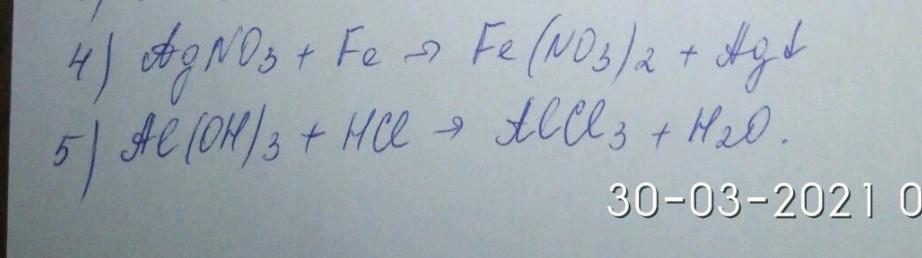 4) AgNO3 + Fe → Fe(NO3)2 + Ag↓
5) Al(OH)3 + HCl → AlCl3 + H2O.
30-03-2021 0